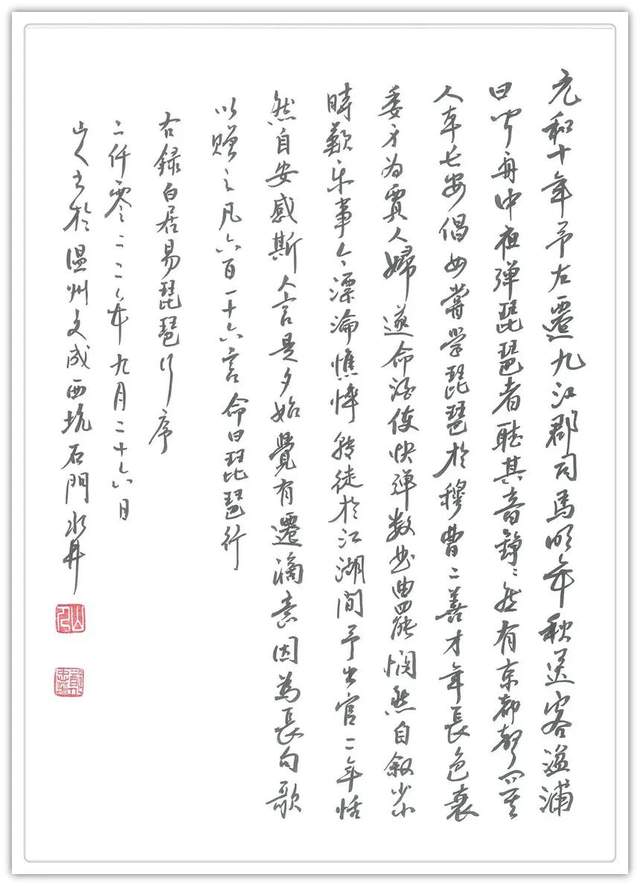 元和十年予左遷九江郡司馬明年秋送客湓浦
口聞舟中夜彈琵琶者聽其音錚〻然有京都聲問其
人本長安倡女嘗學琵琶於穆曹二善才年長色衰
委身為賈人婦遂命酒使快彈數曲曲罷憫然自敘少小
時歡樂事今漂淪憔悴轉徙於江湖間予出官二年恬
然自安感斯人言是夕始覺有遷謫意因為長句歌
以贈之凡六百一十六言命曰琵琶行
右録白居易琵琶行序
二仟零二二年九月二十六日
山人書於温州文成西坑石門水井
山人